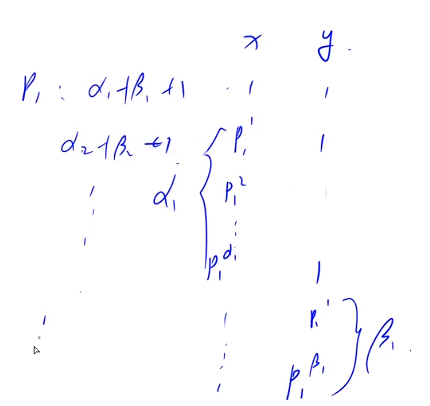 x y.
p₁ : α₁+β₁+1 1 1
α₂+β₂+1 p₁¹ 1
α₁ { p₁²
⋮
p₁^α₁ 1
p₁¹
p₁^β₁ } β₁